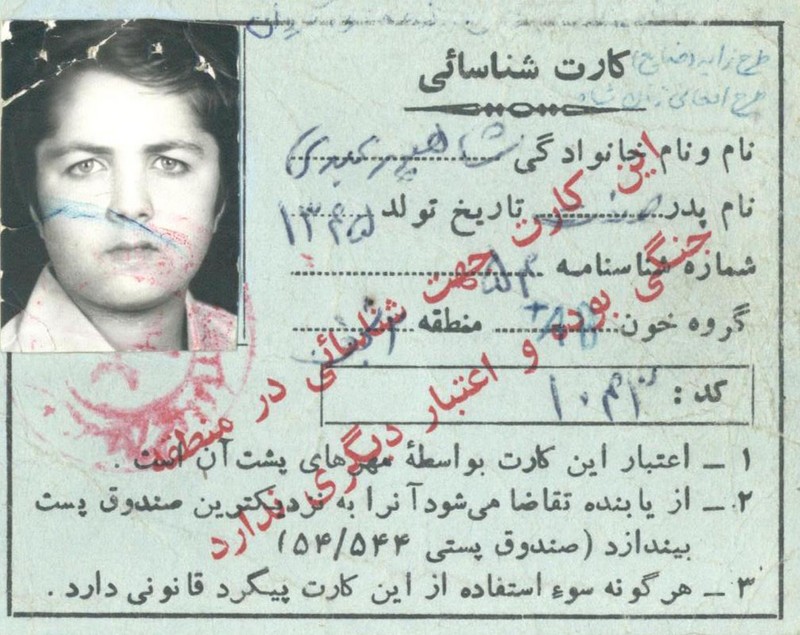 کارت شناسائی
نام و نام خانوادگی
نام پدر صفت تاریخ تولد ۱۳۴۵
شماره شناسنامه ۵۴
گروه خون AB+ منطقه
کد : ۱۰۴۳
۱ ــ اعتبار این کارت بواسطهٔ مهرهای پشت آن است .
۲ ــ از یابنده تقاضا می‌شود آنرا به نزدیکترین صندوق پست
بیندازد (صندوق پستی ۵۴/۵۴۴)
۳ ــ هرگونه سوء استفاده از این کارت پیگرد قانونی دارد .
این کارت جهت شناسائی در منطقه
جنگی بوده و اعتبار دیگری ندارد